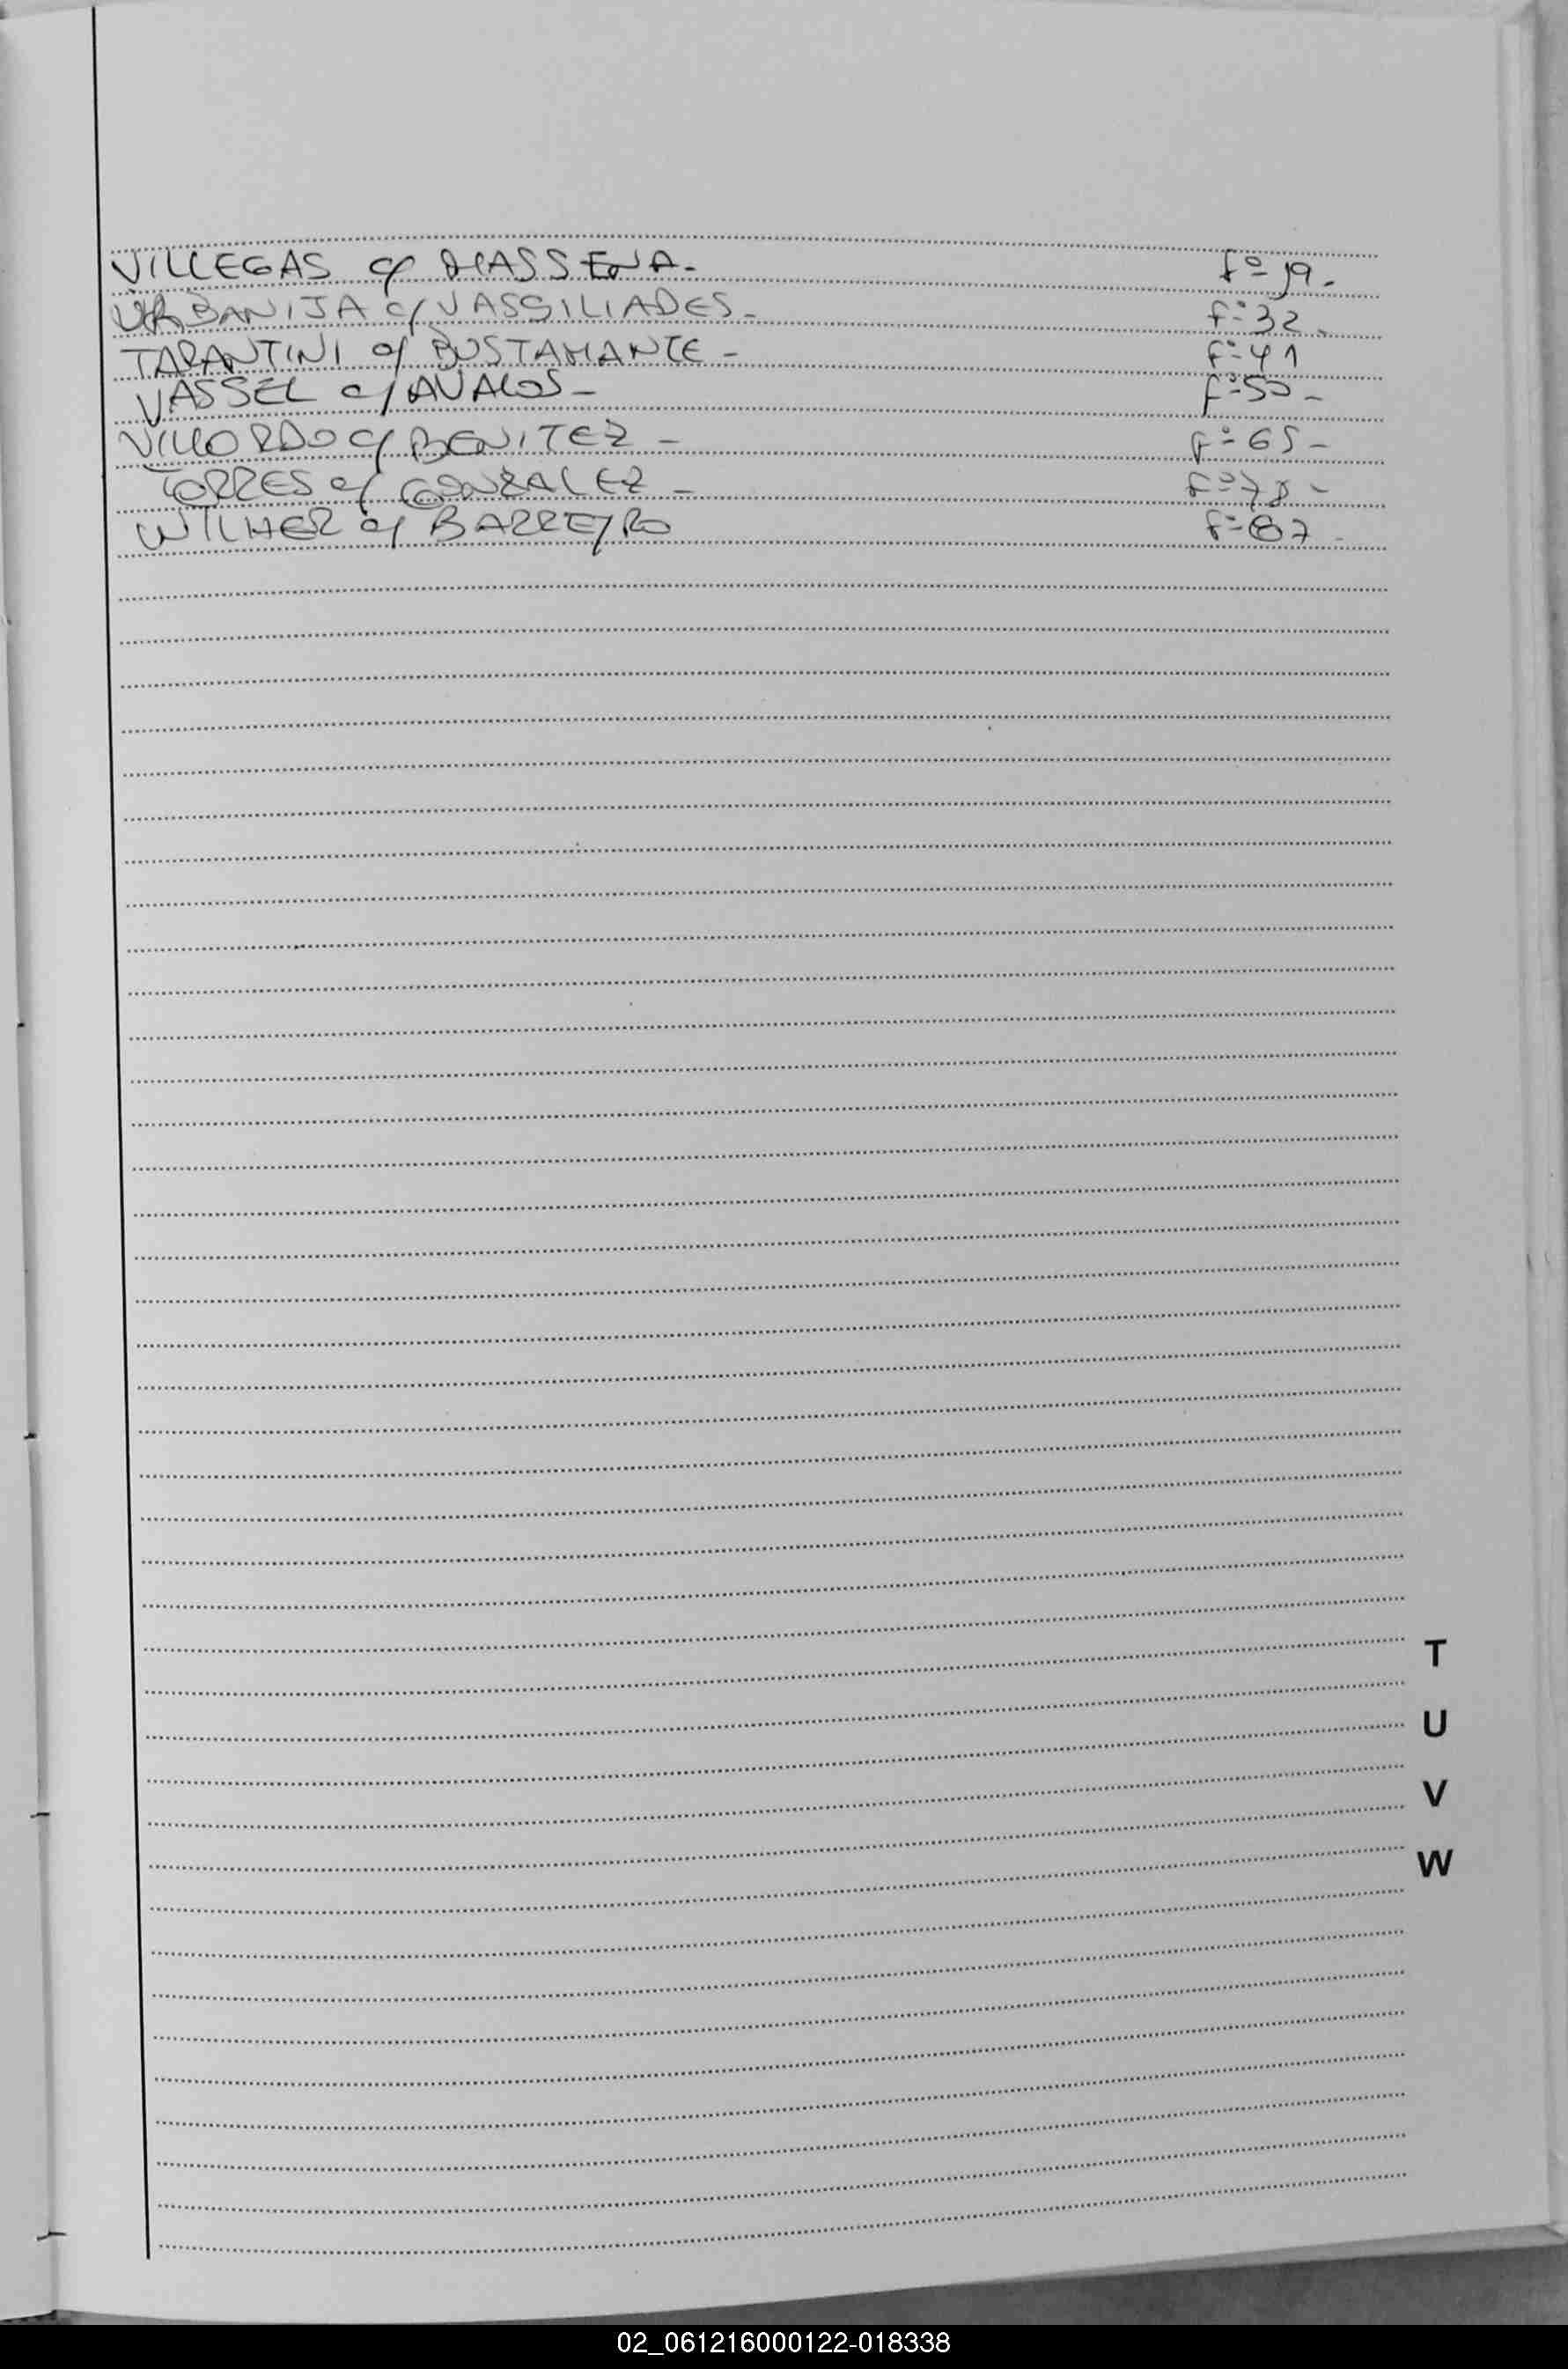 VILLEGAS c/ MASSENA. fº 19.
URBANIJA c/ VASSILIADES. fº 32.
TARANTINI c/ BUSTAMANTE - fº 41
VASSEL c/ AVALOS - fº 50 -
VILLORDO c/ BENITEZ - fº 65 -
TORRES c/ GONZALEZ - fº 78 -
WILHER c/ BARREYRO fº 87 -
T
U
V
W
02_061216000122-018338